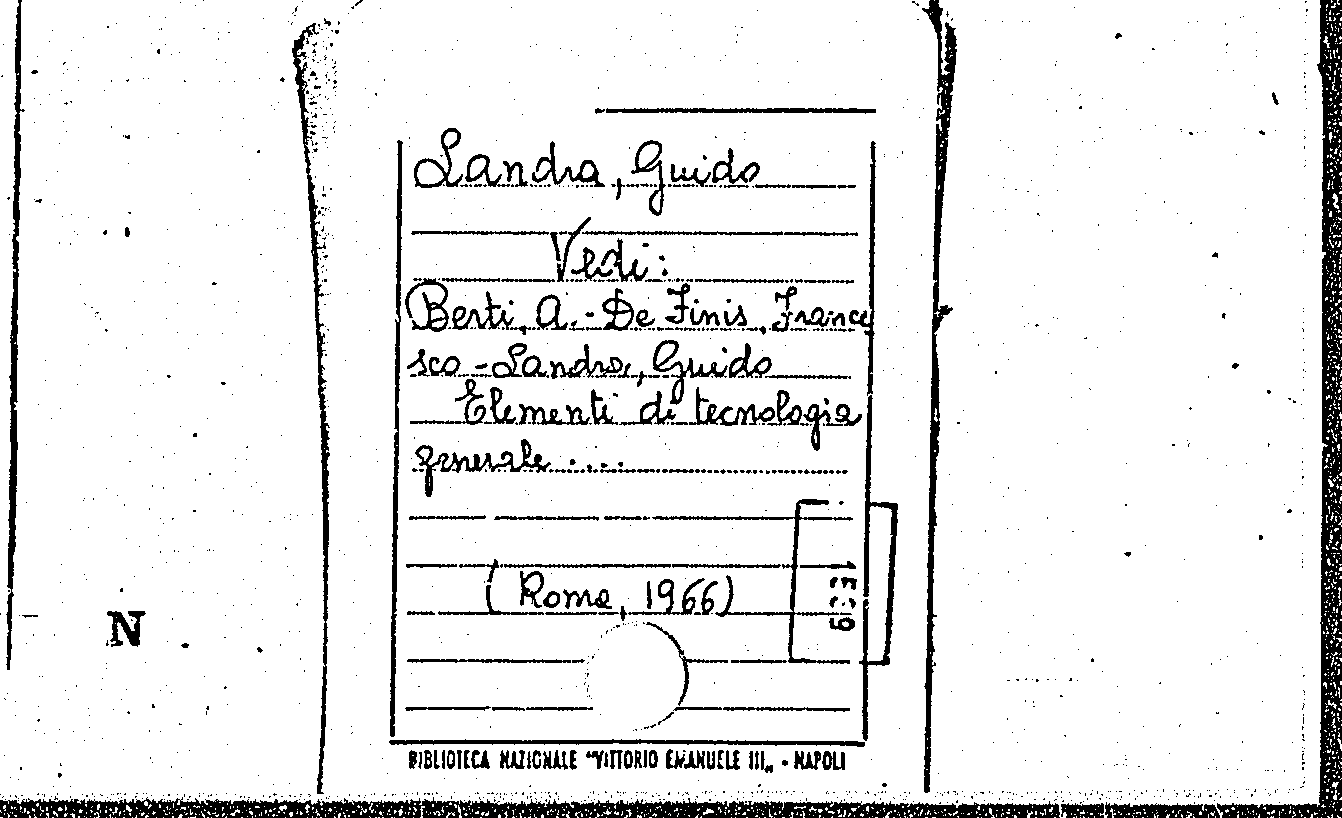 Landra, Guido
Vedi:
Berti, A.- De Finis, France
sco - Landra, Guido
Elementi di tecnologia
generale ....
(Roma, 1966)
N
BIBLIOTECA NAZIONALE "VITTORIO EMANUELE III„ - NAPOLI